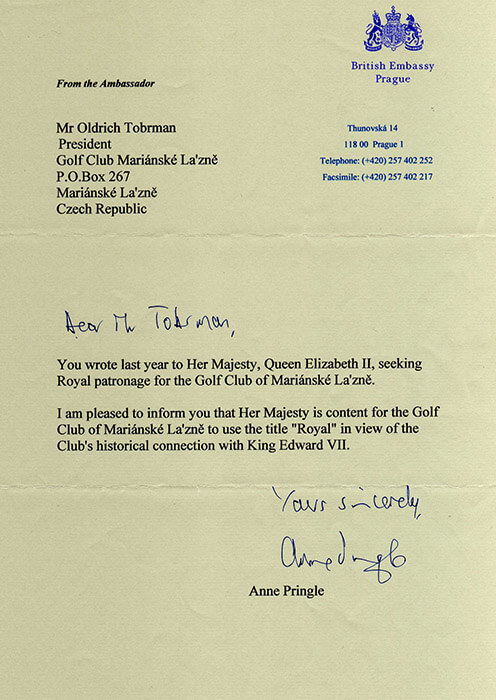 British Embassy
Prague
From the Ambassador
Mr Oldrich Tobrman
President
Golf Club Mariánské La'zně
P.O.Box 267
Mariánské La'zně
Czech Republic
Thunovská 14
118 00 Prague 1
Telephone: (+420) 257 402 252
Facsimile: (+420) 257 402 217
Dear Mr Tobrman,
You wrote last year to Her Majesty, Queen Elizabeth II, seeking
Royal patronage for the Golf Club of Mariánské La'zně.
I am pleased to inform you that Her Majesty is content for the Golf
Club of Mariánské La'zně to use the title "Royal" in view of the
Club's historical connection with King Edward VII.
Yours sincerely,
Anne Pringle
Anne Pringle